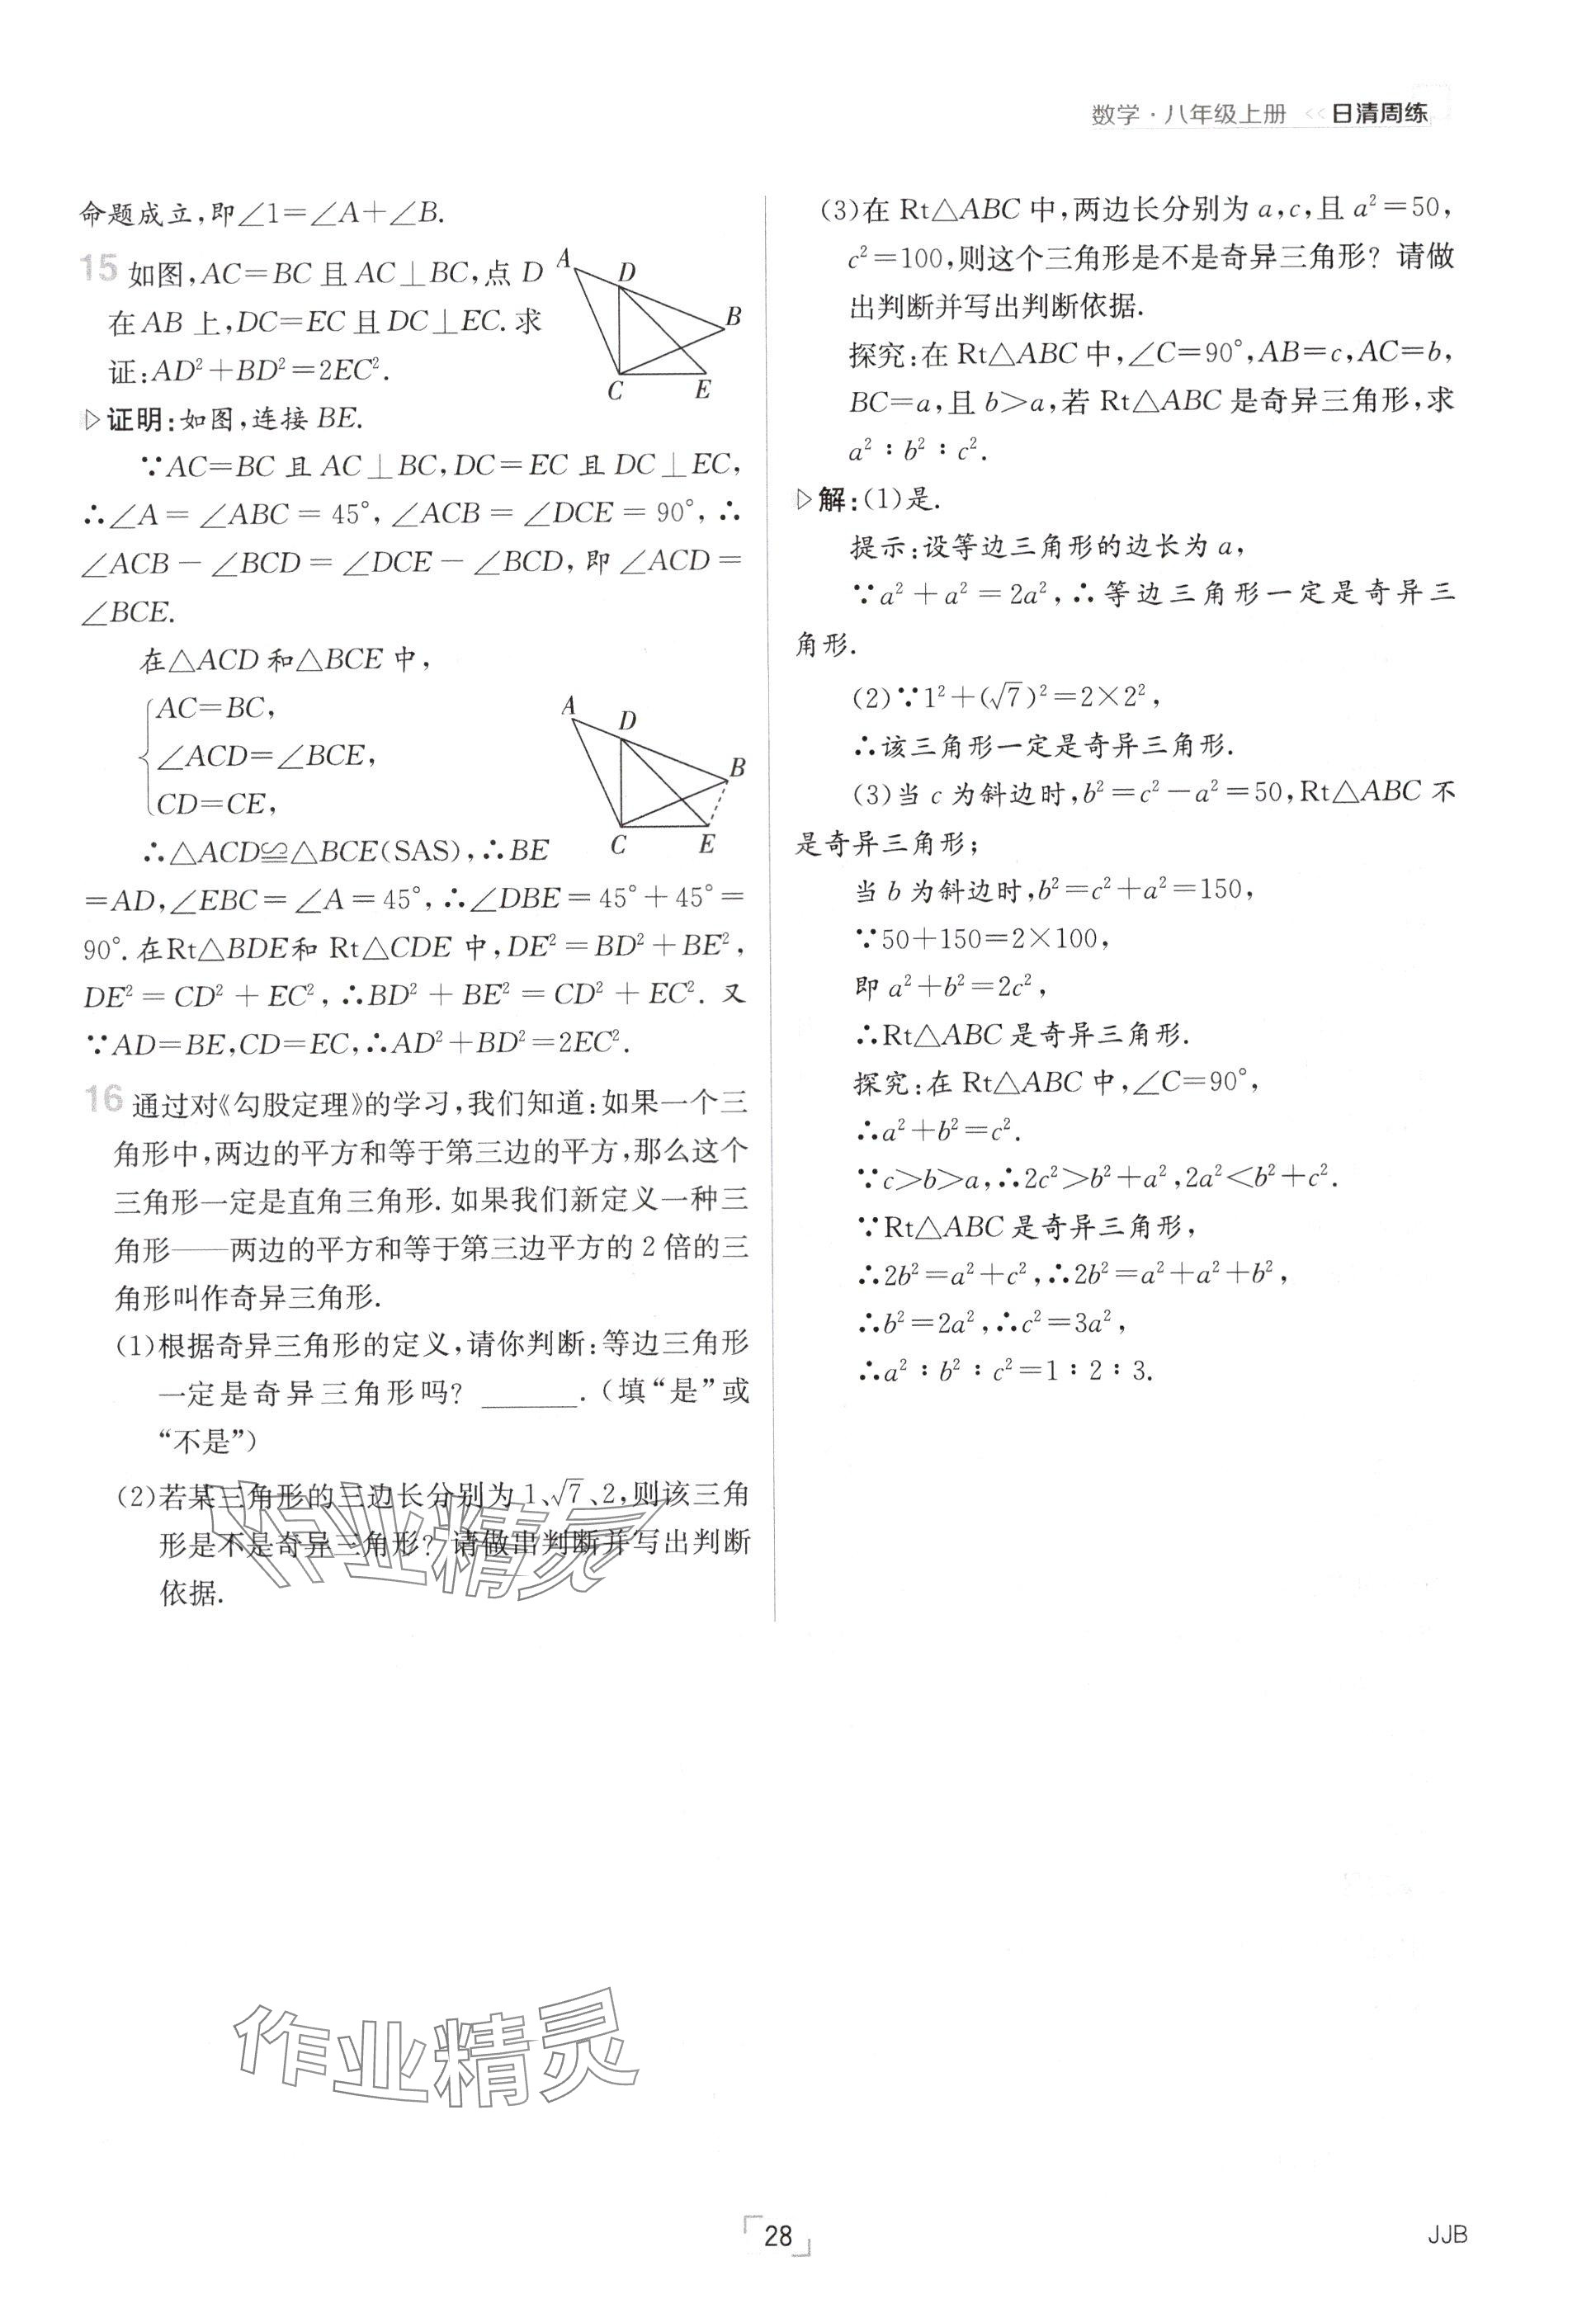 数学·八年级上册 << 日清周练
命题成立,即∠1=∠A+∠B.
15 如图,AC=BC且AC⊥BC,点D
在AB上,DC=EC且DC⊥EC.求
证:AD²+BD²=2EC².
A
D
B
C
E
▷证明:如图,连接BE.
∵AC=BC且AC⊥BC,DC=EC且DC⊥EC,
∴∠A=∠ABC=45°,∠ACB=∠DCE=90°,∴
∠ACB-∠BCD=∠DCE-∠BCD,即∠ACD=
∠BCE.
在△ACD和△BCE中,
AC=BC,
∠ACD=∠BCE,
CD=CE,
A
D
B
C
E
∴△ACD≌△BCE(SAS),∴BE
=AD,∠EBC=∠A=45°,∴∠DBE=45°+45°=
90°.在Rt△BDE和Rt△CDE中,DE²=BD²+BE²,
DE²=CD²+EC²,∴BD²+BE²=CD²+EC².又
∵AD=BE,CD=EC,∴AD²+BD²=2EC².
16 通过对《勾股定理》的学习,我们知道:如果一个三
角形中,两边的平方和等于第三边的平方,那么这个
三角形一定是直角三角形.如果我们新定义一种三
角形——两边的平方和等于第三边平方的2倍的三
角形叫作奇异三角形.
(1)根据奇异三角形的定义,请你判断:等边三角形
一定是奇异三角形吗? ______.(填“是”或
“不是”)
(2)若某三角形的三边长分别为1、√7、2,则该三角
形是不是奇异三角形?请做出判断并写出判断
依据.
作业精灵
(3)在Rt△ABC中,两边长分别为a,c,且a²=50,
c²=100,则这个三角形是不是奇异三角形?请做
出判断并写出判断依据.
探究:在Rt△ABC中,∠C=90°,AB=c,AC=b,
BC=a,且b>a,若Rt△ABC是奇异三角形,求
a²:b²:c².
▷解:(1)是.
提示:设等边三角形的边长为a,
∵a²+a²=2a²,∴等边三角形一定是奇异三
角形.
(2)∵1²+(√7)²=2×2²,
∴该三角形一定是奇异三角形.
(3)当c为斜边时,b²=c²-a²=50,Rt△ABC不
是奇异三角形;
当b为斜边时,b²=c²+a²=150,
∵50+150=2×100,
即a²+b²=2c²,
∴Rt△ABC是奇异三角形.
探究:在Rt△ABC中,∠C=90°,
∴a²+b²=c².
∵c>b>a,∴2c²>b²+a²,2a²<b²+c².
∵Rt△ABC是奇异三角形,
∴2b²=a²+c²,∴2b²=a²+a²+b²,
∴b²=2a²,∴c²=3a²,
∴a²:b²:c²=1:2:3.
作业精灵
28
JJB